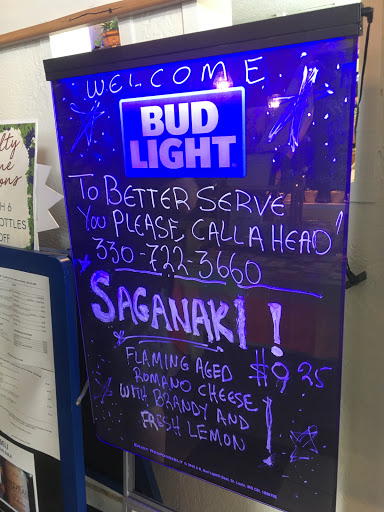 WELCOME
BUD
LIGHT
TO BETTER SERVE
YOU PLEASE CALL AHEAD!
330-722-3660
SAGANAKI!
FLAMING AGED $9.25
ROMANO CHEESE
WITH BRANDY AND
FRESH LEMON!
6
BOTTLES
OFF